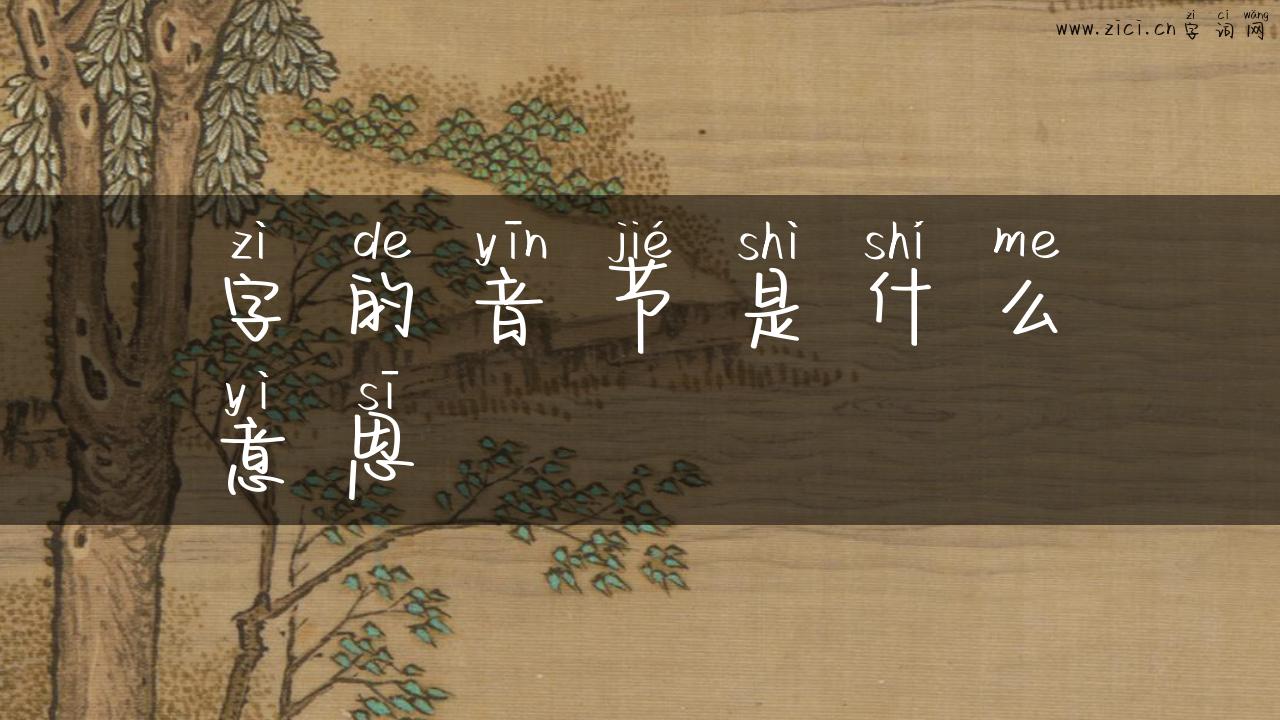 zì cí wǎng
www.zici.cn 字词网
zì de yīn jié shì shí me
字的音节是什么
yì sī
意思